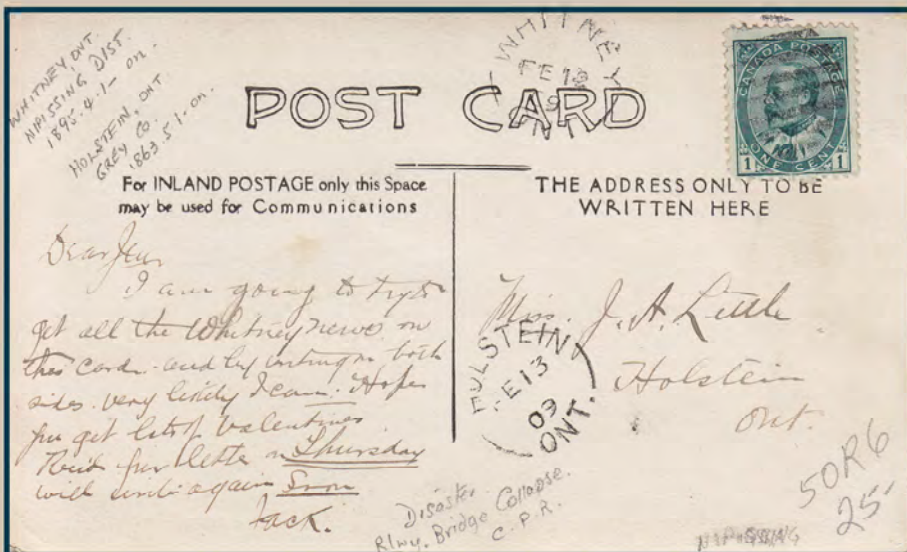 WHITNEY, ONT.
NIPISSING DIST.
1895-4-1- on.
HOLSTEIN, ONT
GREY CO.
1863-5-1-on.
WHITNEY
FE 12
09
ONT
CANADA POSTAGE
1 ONE CENT 1
POST CARD
For INLAND POSTAGE only this Space
may be used for Communications
THE ADDRESS ONLY TO BE
WRITTEN HERE
Dear Jean
I am going to try to
get all the Whitney news on
this card and by writing on both
sides very I can. Hope
you get lots of Valentines
your letter on Thursday
will write again Soon
Jack.
Miss. J. A. Little
Holstein
Ont.
HOLSTEIN
FE 13
09
ONT.
Disaster
Rlwy. Bridge Collapse.
C.P.R.
NIPISSING
50R6
25-